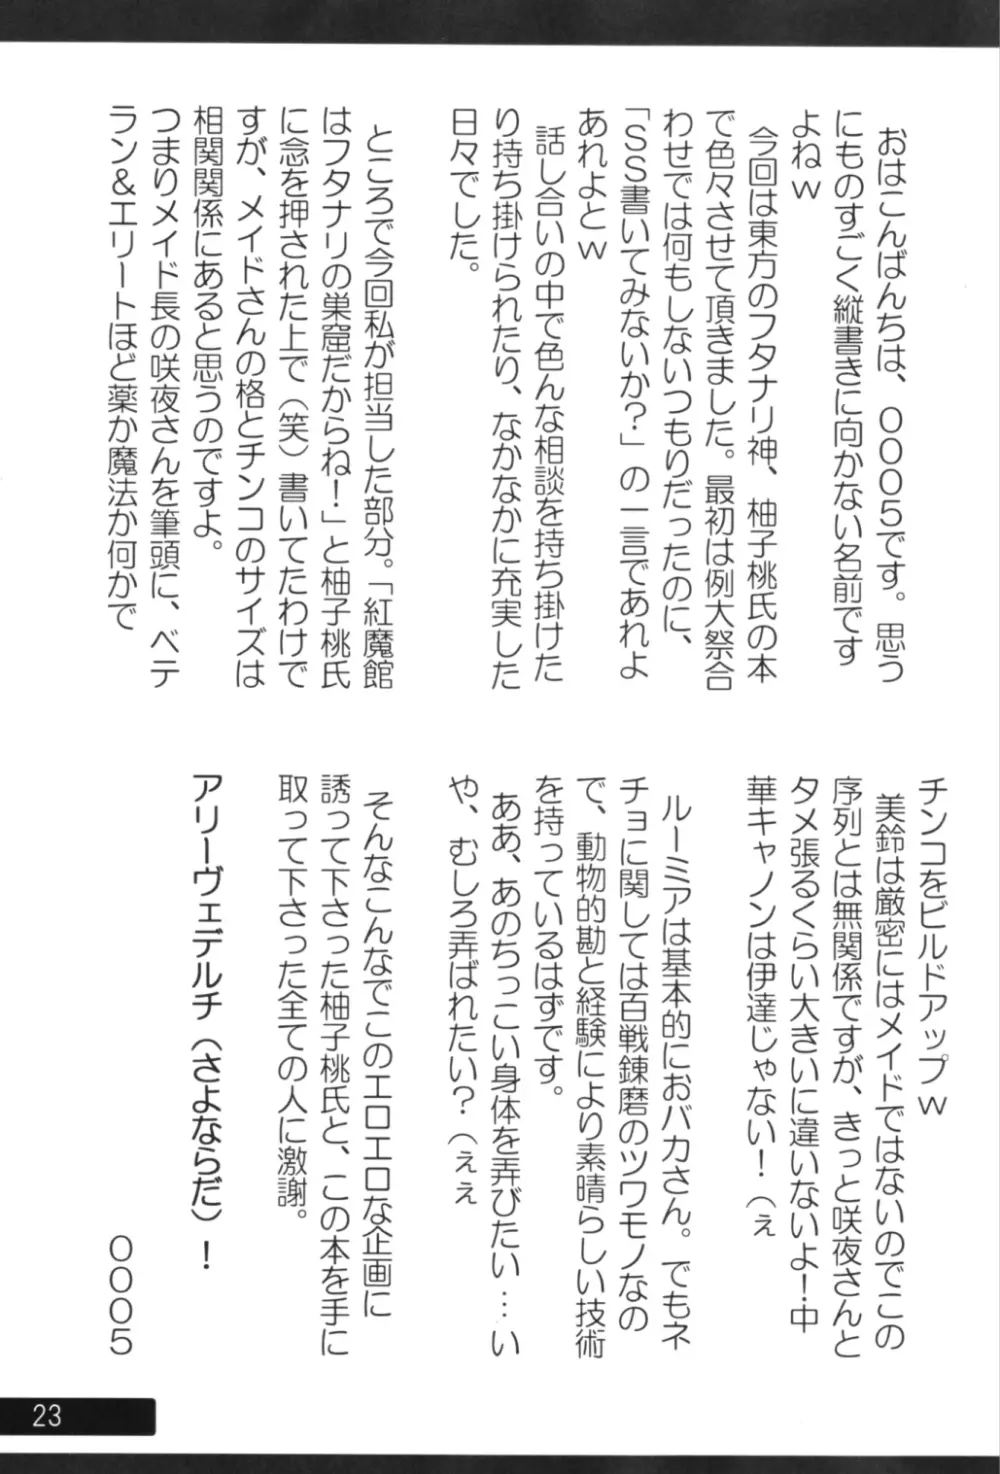 おはこんばんちは、０００５です。思う
にものすごく縦書きに向かない名前です
よねｗ
今回は東方のフタナリ神、柚子桃氏の本
で色々させて頂きました。最初は例大祭合
わせでは何もしないつもりだったのに、
「ＳＳ書いてみないか？」の一言であれよ
あれよとｗ
話し合いの中で色んな相談を持ち掛けた
り持ち掛けられたり、なかなかに充実した
日々でした。
ところで今回私が担当した部分。「紅魔館
はフタナリの巣窟だからね！」と柚子桃氏
に念を押された上で（笑）書いてたわけで
すが、メイドさんの格とチンコのサイズは
相関関係にあると思うのですよ。
つまりメイド長の咲夜さんを筆頭に、ベテ
ラン＆エリートほど薬か魔法か何かで
チンコをビルドアップｗ
美鈴は厳密にはメイドではないのでこの
序列とは無関係ですが、きっと咲夜さんと
タメ張るくらい大きいに違いないよ！中
華キャノンは伊達じゃない！（ぇ
ルーミアは基本的におバカさん。でもネ
チョに関しては百戦錬磨のツワモノなの
で、動物的勘と経験により素晴らしい技術
を持っているはずです。
ああ、あのちっこい身体を弄びたい…い
や、むしろ弄ばれたい？（ぇぇ
そんなこんなでこのエロエロな企画に
誘って下さった柚子桃氏と、この本を手に
取って下さった全ての人に激謝。
アリーヴェデルチ（さよならだ）！
０００５
23